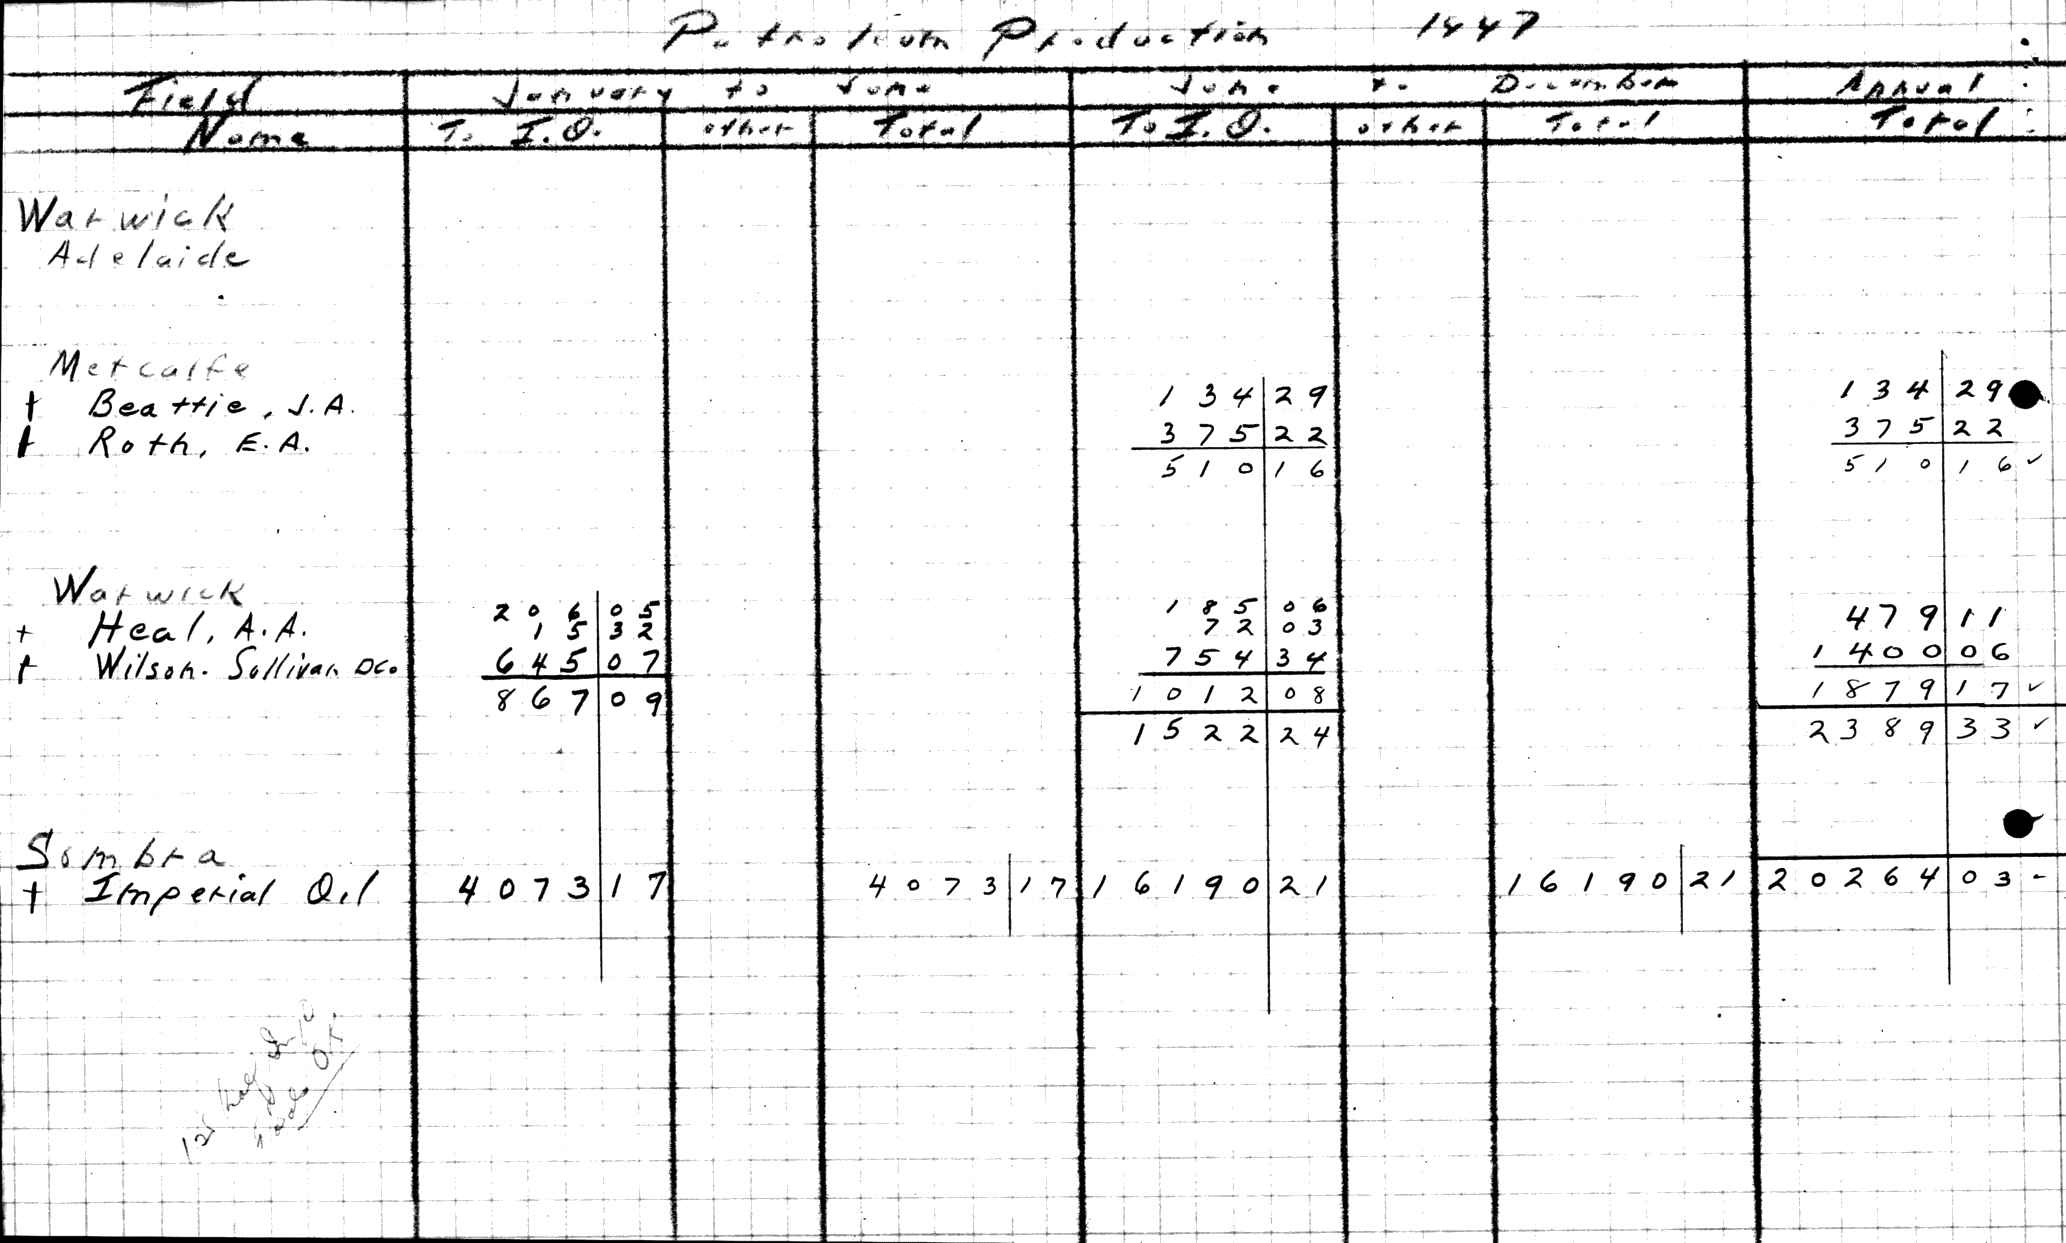 Petroleum Production 1947
Field January to June June to December Annual
Name To I.O. other Total To I.O. other Total Total
Warwick
Adelaide
Metcalfe
† Beattie, J.A. 134 29 134 29
† Roth, E.A. 375 22 375 22
510 16 510 16 ✓
Warwick
206 05 185 06
+ Heal, A.A. 15 32 72 03 479 11
† Wilson-Sullivan DCo. 645 07 754 34 1400 06
867 09 1012 08 1879 17 ✓
1522 24 2389 33 ✓
Sombra
† Imperial Oil 4073 17 4073 17 16190 21 16190 21 20264 03 -
1st half
OK